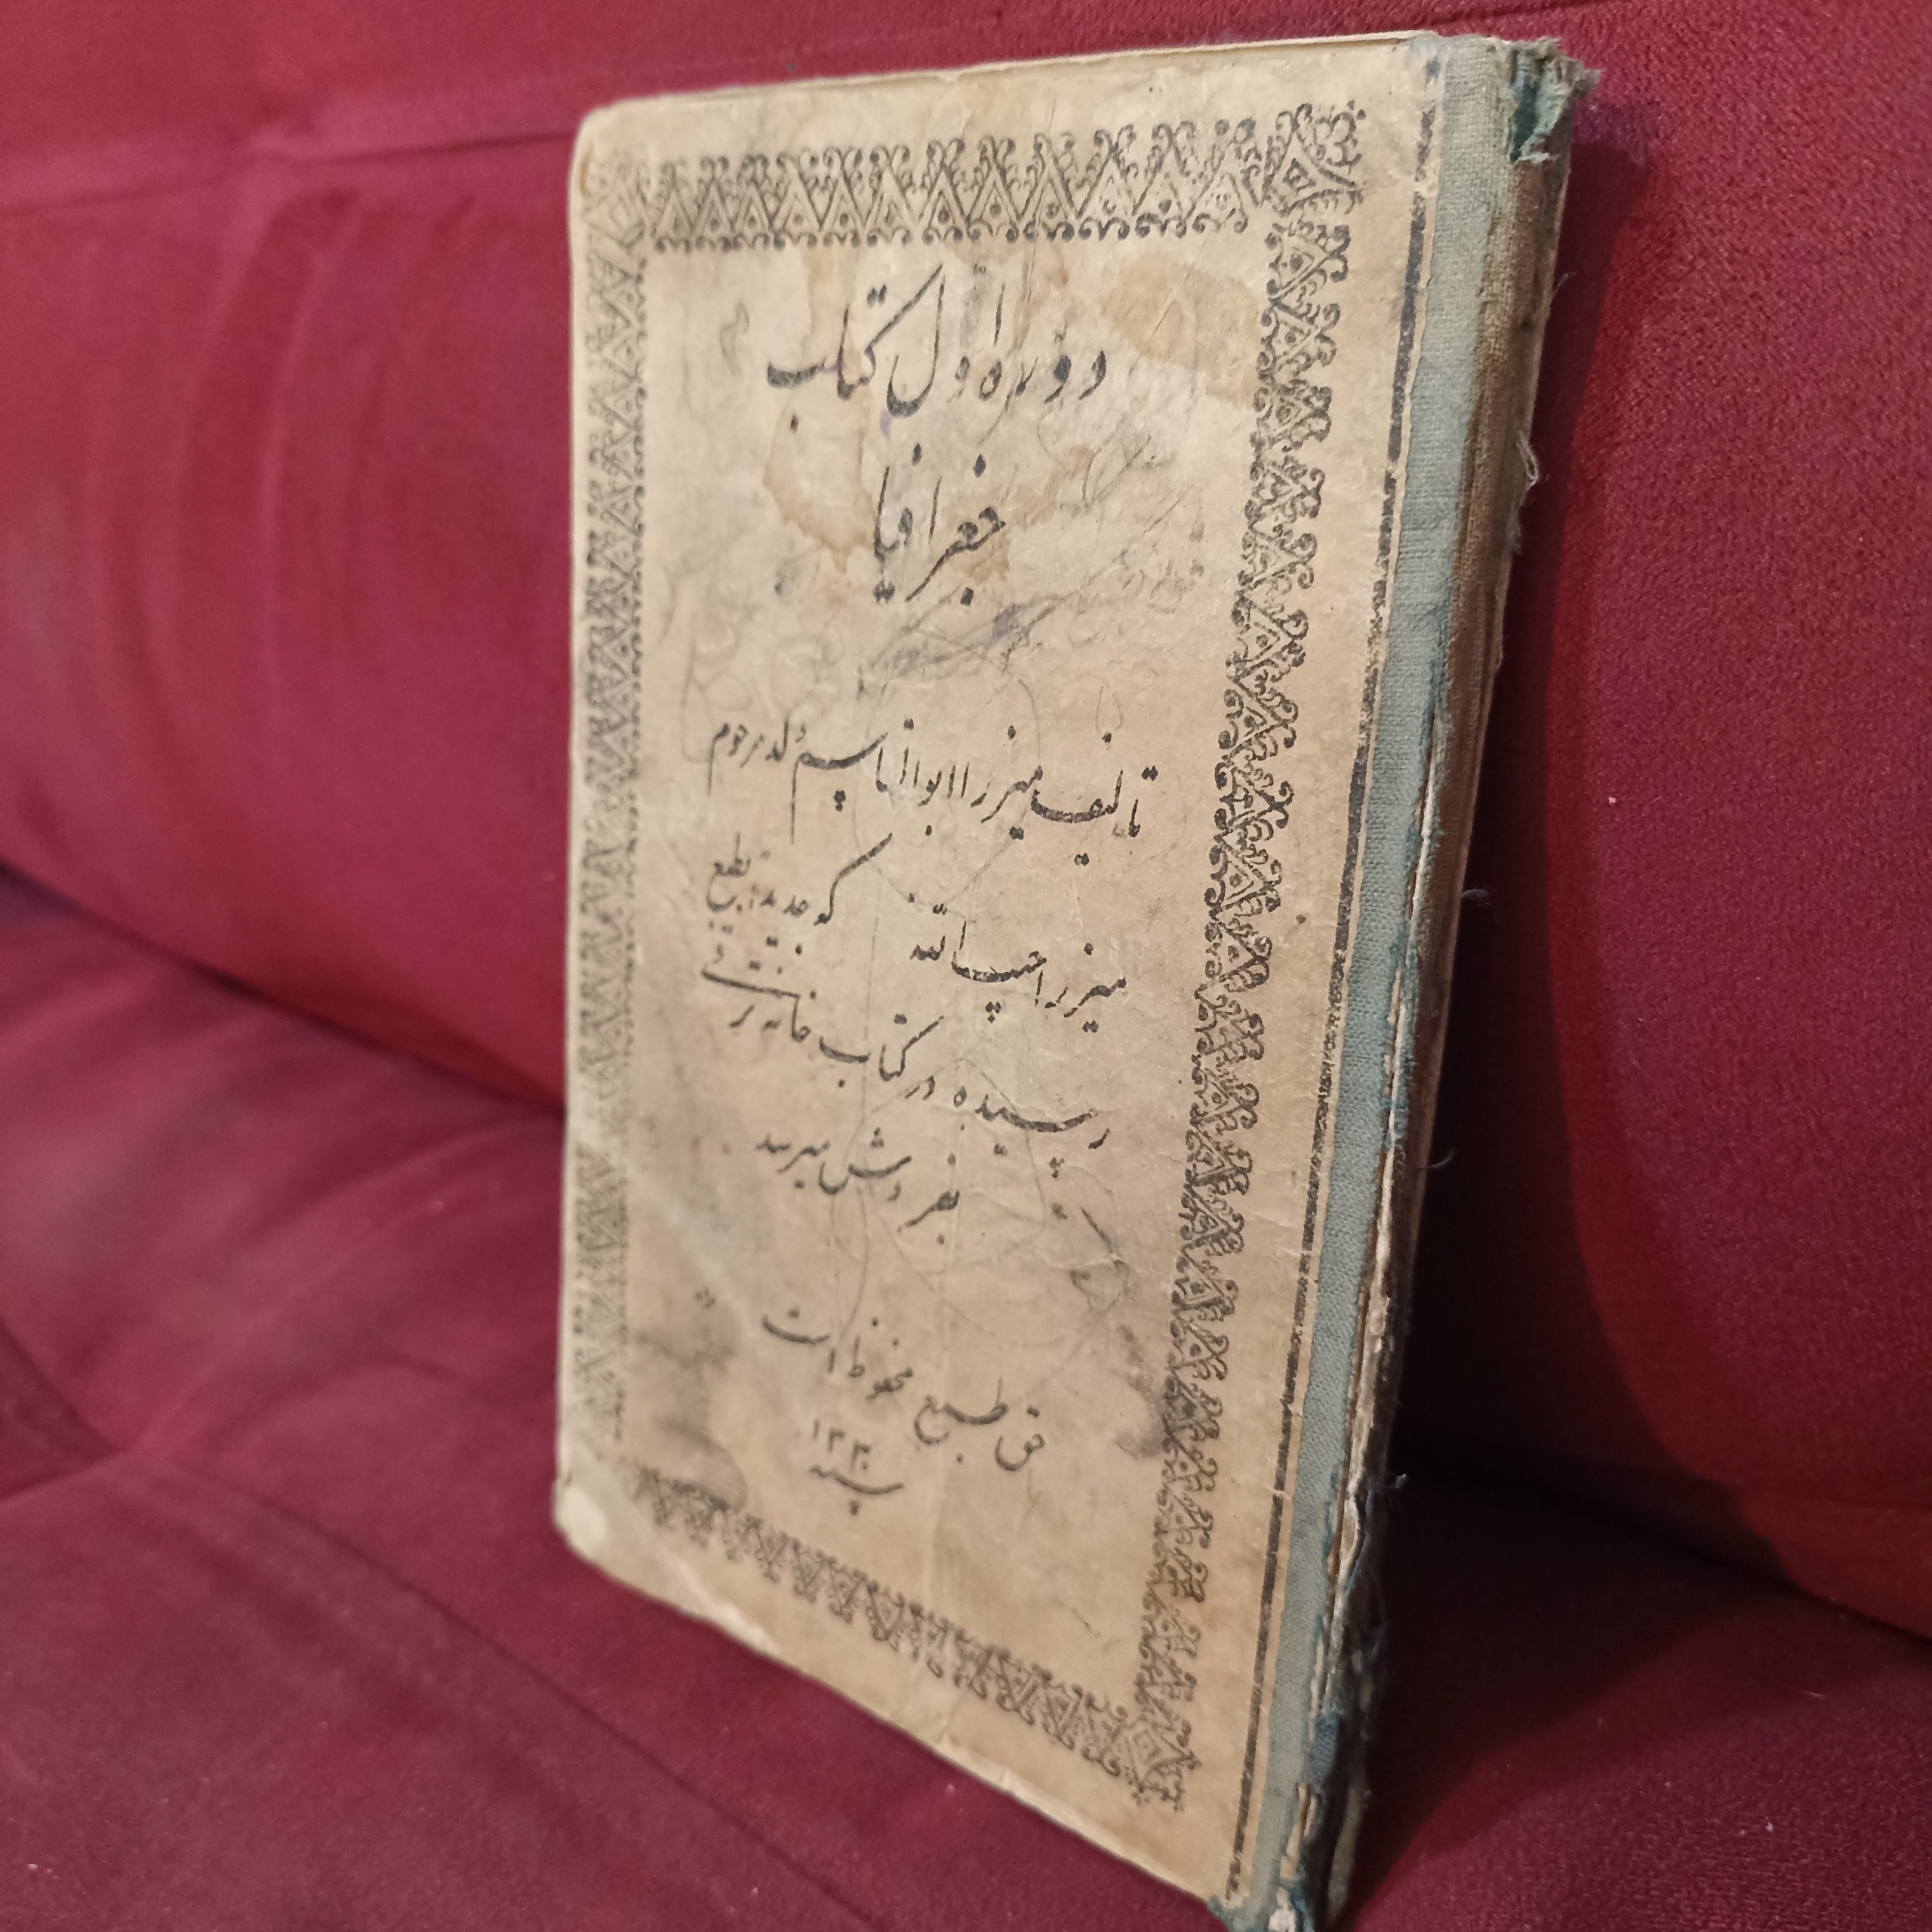 دوره اول کتاب
جغرافیا
تالیف میرزا ابوالقاسم ولد مرحوم
میرزا حبیب الله که جدیدا بطبع
رسیده در کتاب خانه
بفروش میرسد
حق طبع محفوظ است
سنه ۱۳۳۰